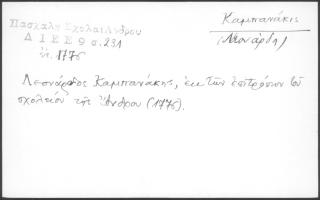 Πασχαλη Σχολαι Ανδρου
ΔΙΕΕ 9 σ. 231
ἔτ. 1776
Καμπανάκις
(Λεονάρδος)
Λεονάρδος Καμπανάκης, ἐκ τῶν ἐπιτρόπων τοῦ
σχολείου τῆς Ἄνδρου (1776).